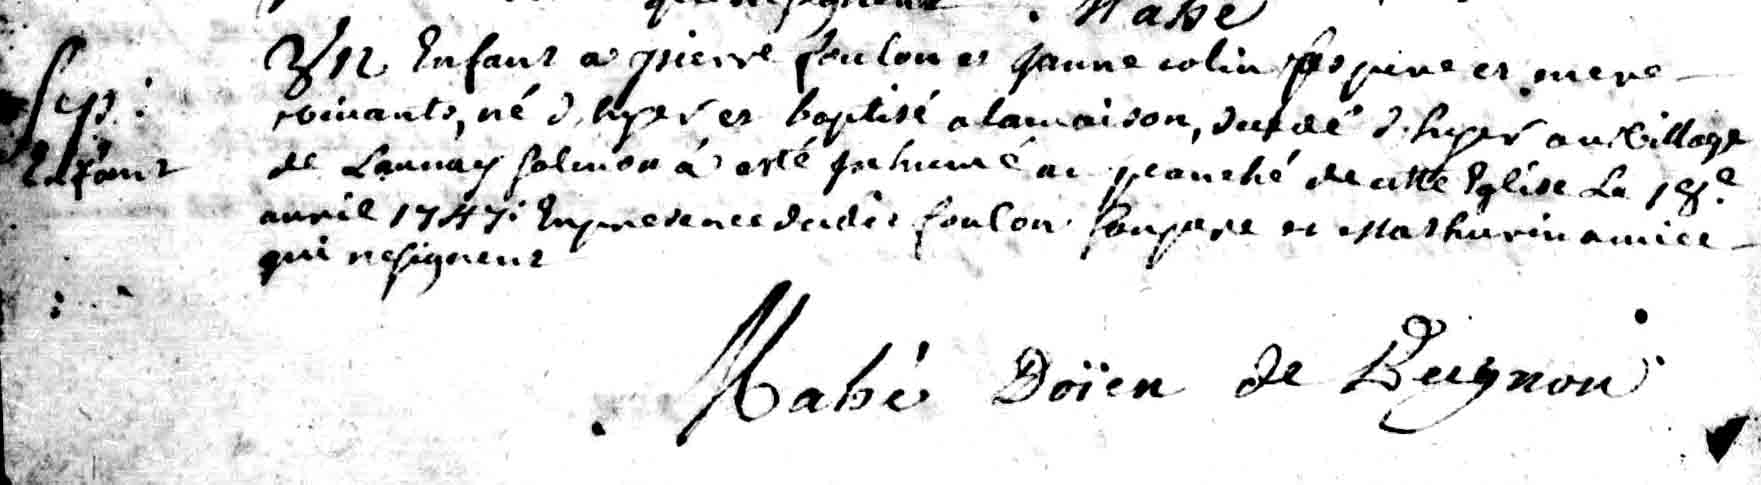 Mahé
Sep:
Enfant
Un Enfant a pierre foulon et janne colin ses pere et mere
vivants, né d'hyer et baptisé a la maison, decedé d'hyer au village
de Launay Salmon á esté inhumé au peauché de cette Eglise Le 18.e
avril 1747. En presence dudit foulon son pere et Mathurin amice
qui ne signent
Mahé Doïen de Beignon